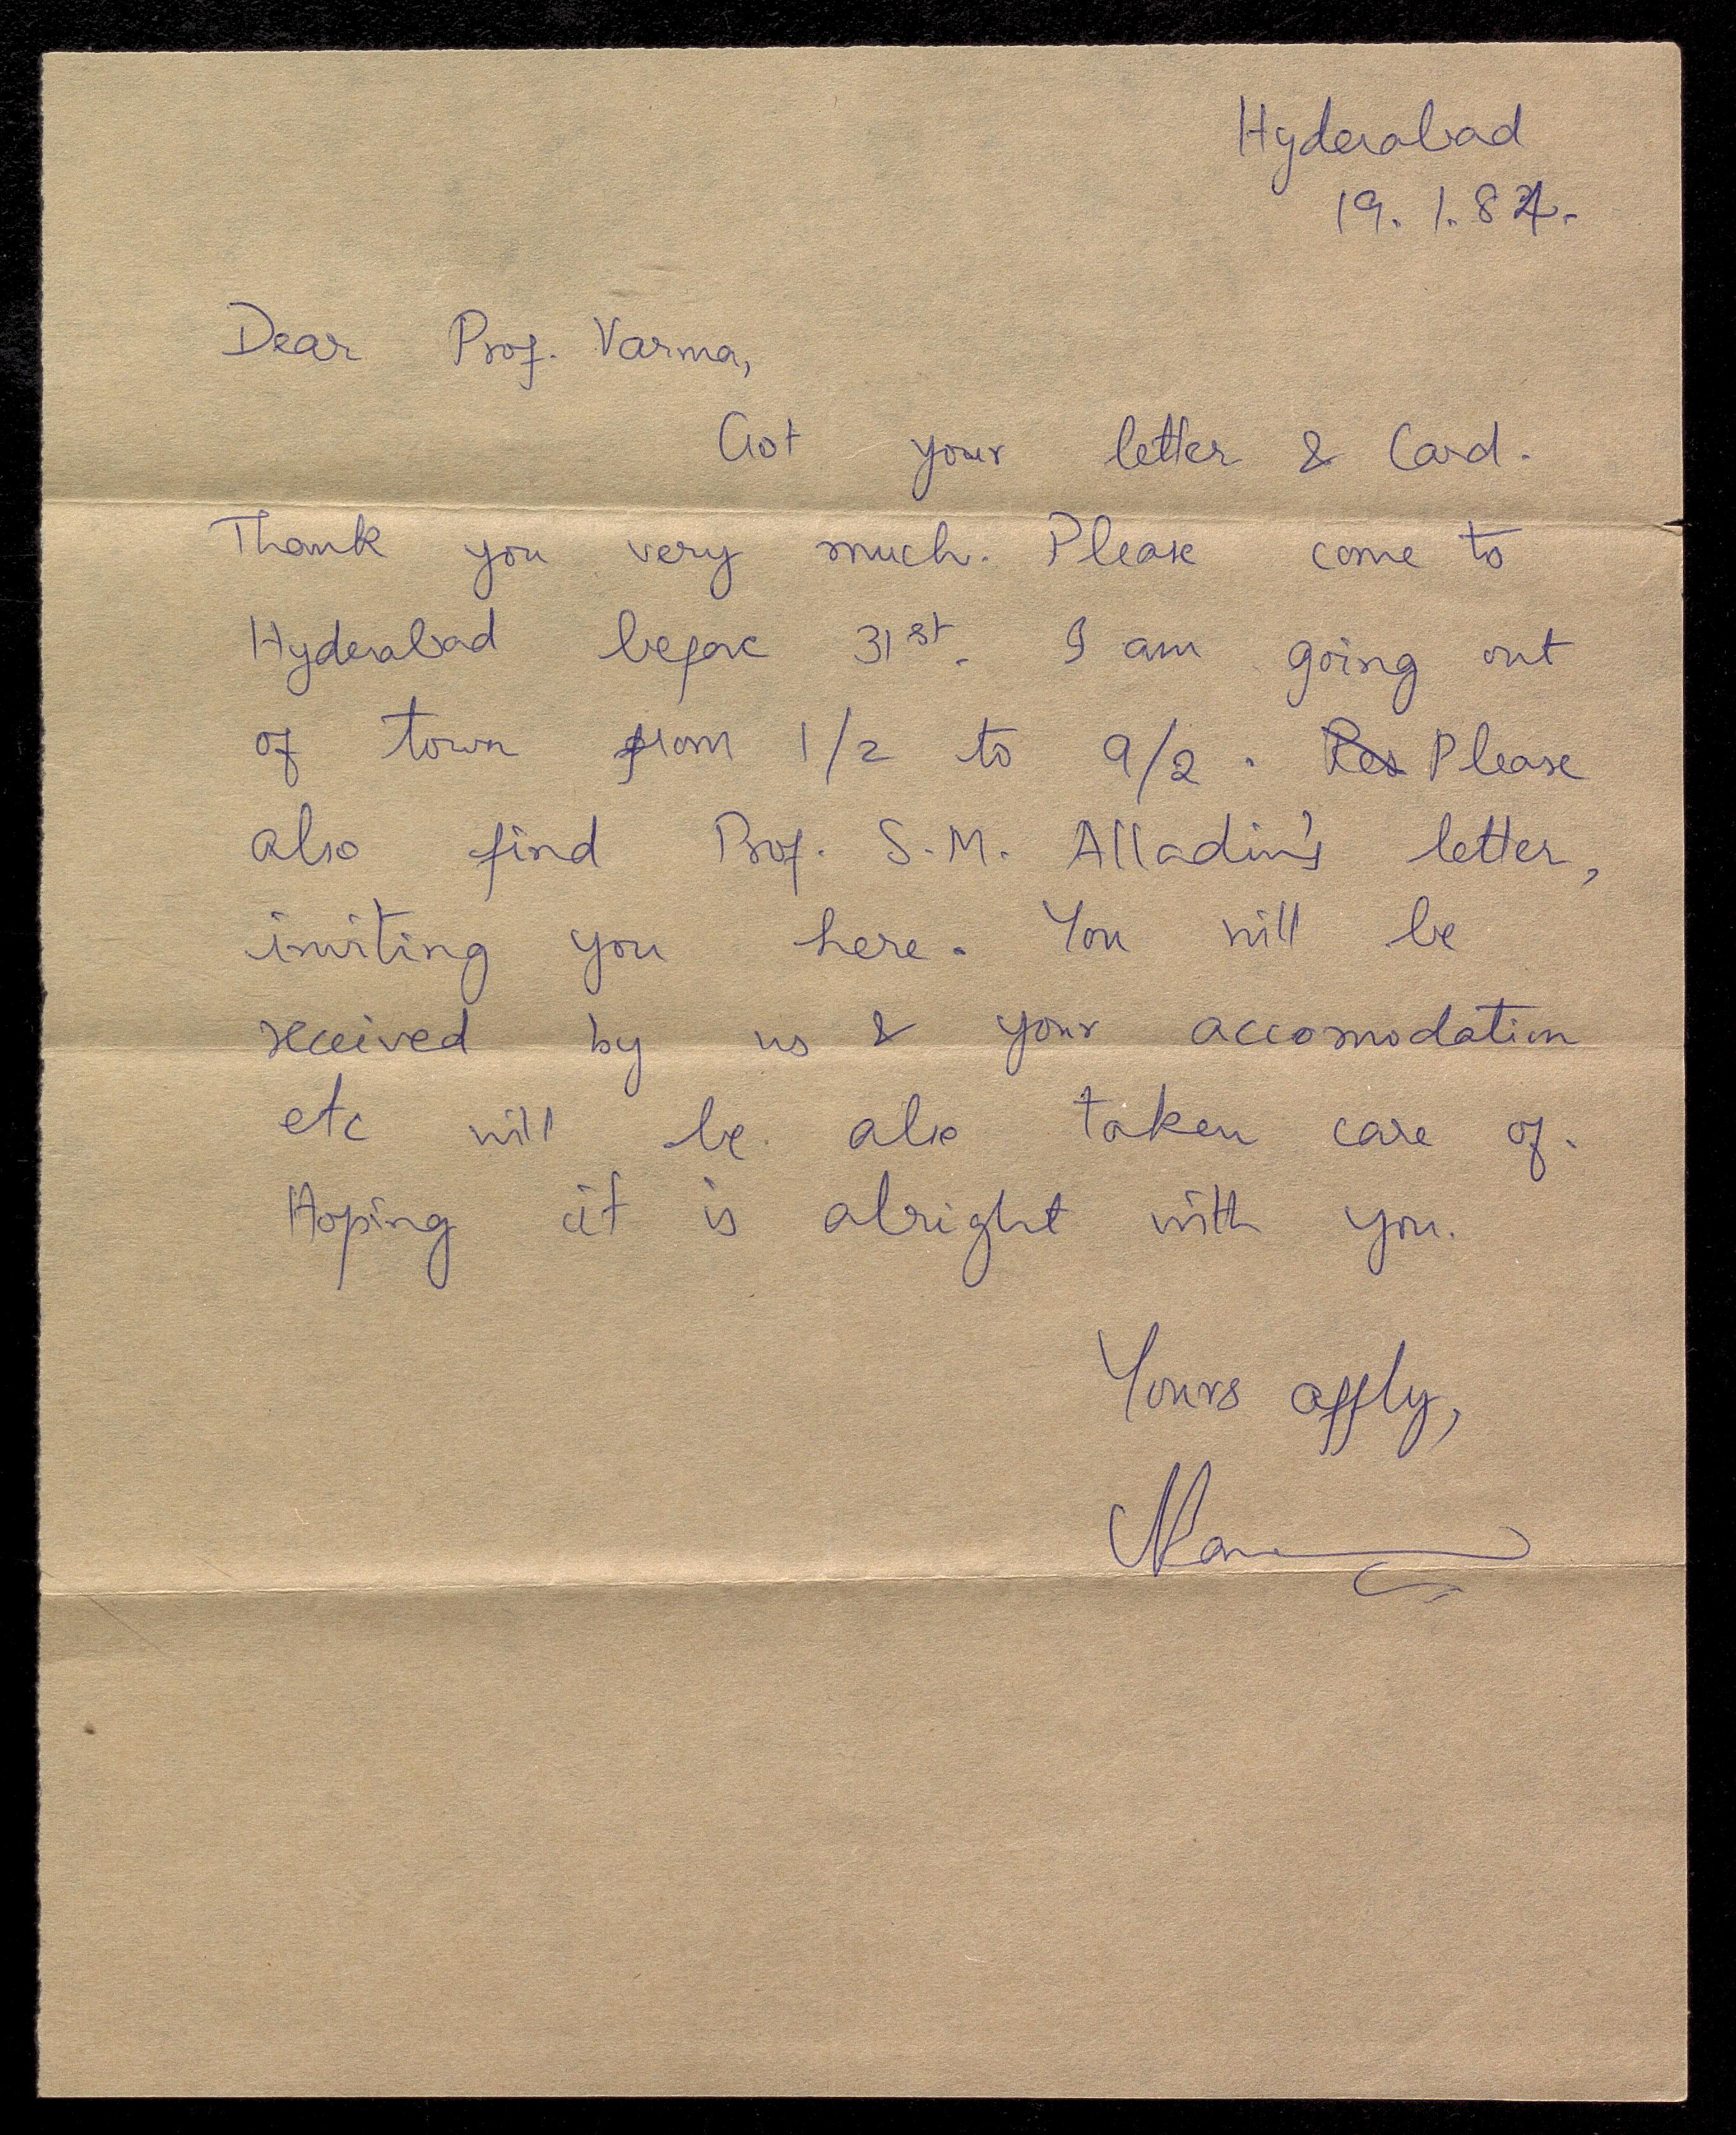 Hyderabad
19.1.84.
Dear Prof. Varma,
Got your letter & Card.
Thank you very much. Please come to
Hyderabad before 31st. I am going out
of town from 1/2 to 9/2. Please
also find Prof. S.M. Alladin's letter,
inviting you here. You will be
received by us & your accomodation
etc will be also taken care of.
Hoping it is alright with you.
Yours affly,